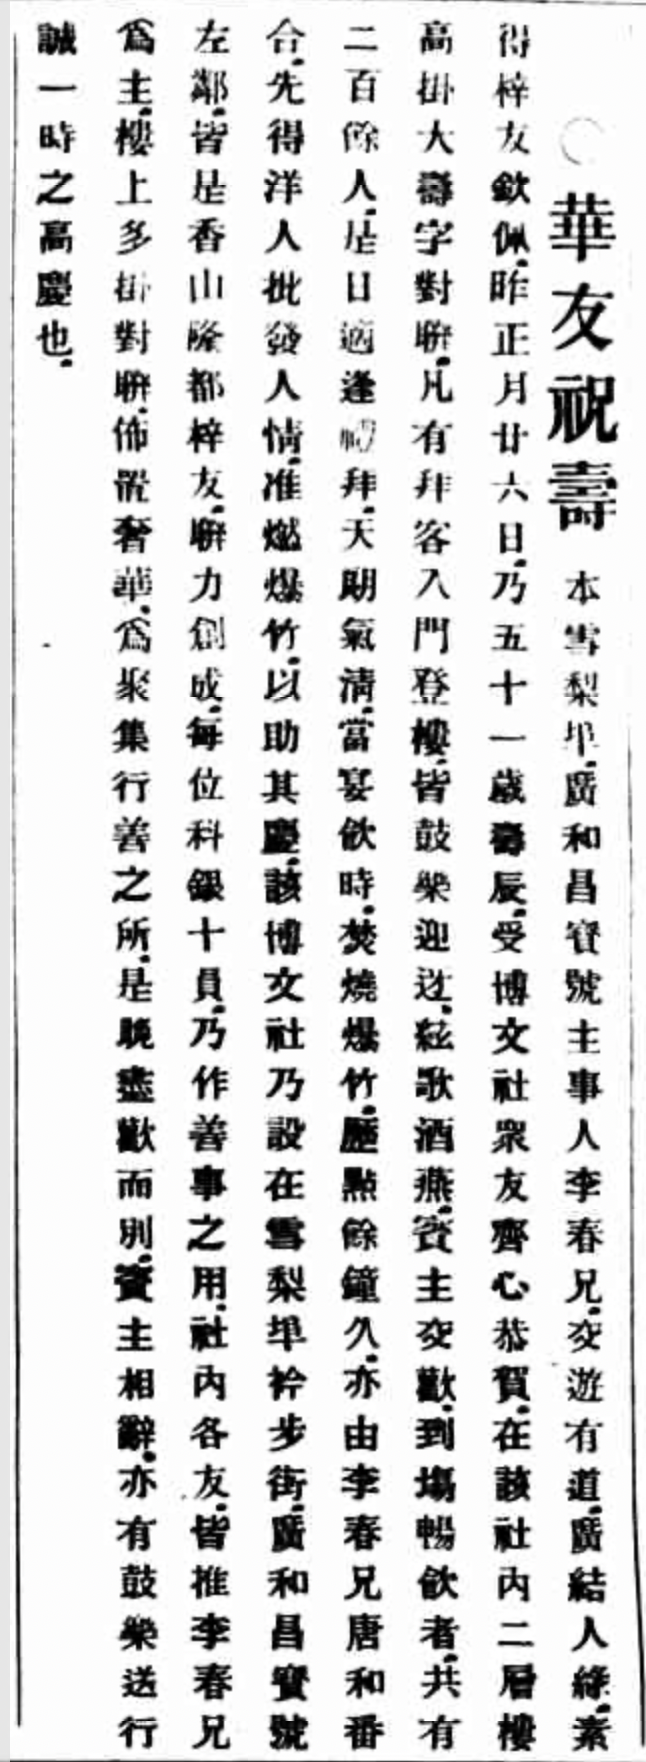 ○華友祝壽 本雪梨埠.廣和昌寶號主事人李春兄.交遊有道.廣結人緣.素
得梓友欽佩.昨正月廿六日.乃五十一歲壽辰.受博文社衆友齊心恭賀.在該社內二層樓
高掛大壽字對聨.凡有拜客入門登樓.皆鼓樂迎迓.絃歌酒燕.賓主交歡.到塲暢飲者.共有
二百餘人.是日適逢禮拜.天朗氣淸.當宴飲時.焚燒爆竹.歷點餘鐘久.亦由李春兄唐和番
合.先得洋人批發人情.准燃爆竹.以助其慶.該博文社乃設在雪梨埠衿步街.廣和昌寶號
左鄰.皆是香山隆都梓友.聨力創成.每位科銀十員.乃作善事之用.社內各友.皆推李春兄
爲主.樓上多掛對聨.佈置奢華.爲聚集行善之所.是晚盡歡而別.賓主相辭.亦有鼓樂送行
誠一時之高慶也.